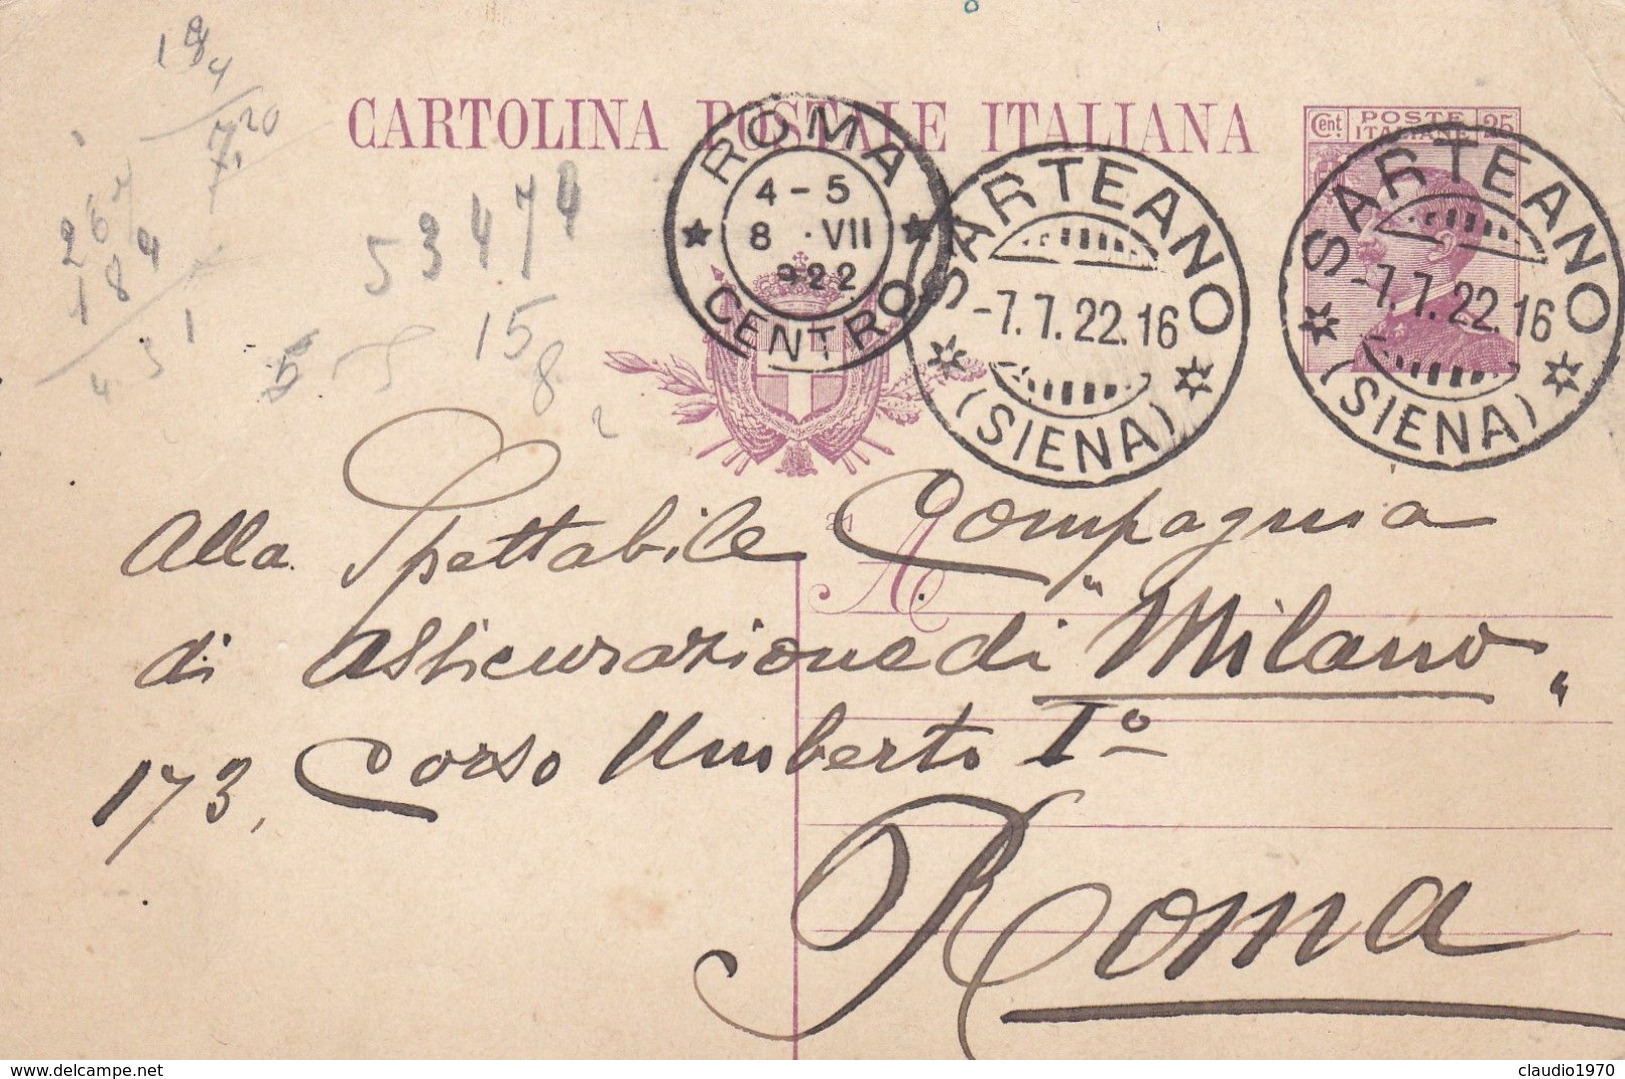 184
7,20
267
184
431
53474
55 158
CARTOLINA POSTALE ITALIANA
Cent. POSTE ITALIANE 25
ROMA
4-5
8 · VII
922
CENTRO
SARTEANO
-7.7.22.16
(SIENA)
SARTEANO
-7.7.22.16
(SIENA)
21
A
Alla Spettabile Compagnia
di Assicurazione di "Milano"
173, Corso Umberto Iº
Roma
delcampe.net
claudio1970